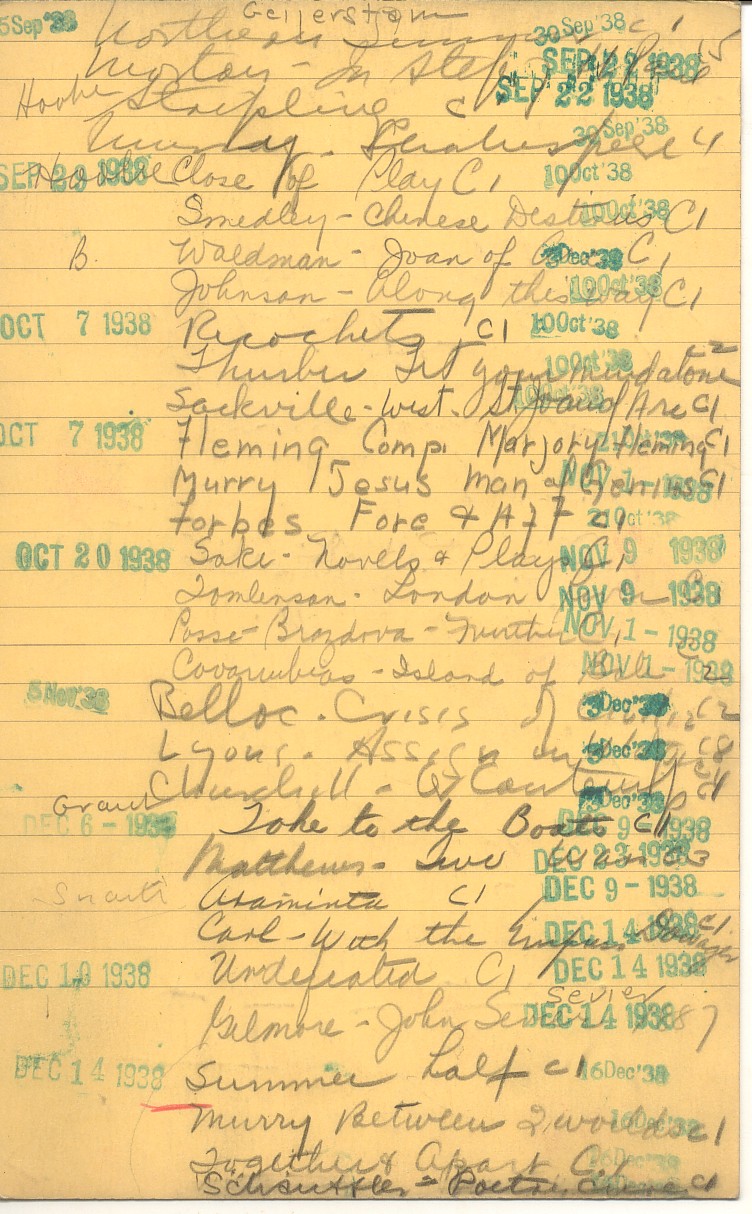 Geijerstam
5 Sep '38 Northern Summer C 1 30 Sep '38
Morton - In Steps 15 SEP 22 1938
Hooke Stripling C SEP 22 1938
Murray. Shakespeare C1 30 Sep '38
SEP 30 1938 Close of Play C1 10 Oct '38
Smedley - Chinese Destinies C1 10 Oct '38
B. Waldman - Joan of Arc C1 3 Dec '38
Johnson - Along this way C1 10 Oct '38
OCT 7 1938 Ricochets C1 10 Oct '38
Thurber Let your mind alone C2 10 Oct '38
Sackville-West. St Joan of Arc C1 10 Oct '38
OCT 7 1938 Fleming Comp. Marjory Fleming C1 21 Oct '38
Murry Jesus Man of Genius C1 NOV 1 - 1938
Forbes Fore & Aft C1 21 Oct '38
OCT 20 1938 Saki - Novels & Plays C1 NOV 9 1938
Tomlinson - London River NOV 9 1938
Posse-Brazdova - Further C1 NOV 1 - 1938
Covarrubias - Island of Bali C2 NOV 1 - 1938
5 Nov '38 Belloc - Crisis of C2 3 Dec '38
Lyons - Assign in Utopia C8 3 Dec '38
Churchill - Gt Contemp C4 3 Dec '38
Grant
DEC 6 - 1938 Take to the Boats C1 DEC 9 - 1938
Matthews - Two Wars C3 DEC 23 1938
Araminta C1 DEC 9 - 1938
Carl - With the Empress Dowager C1 DEC 14 1938
DEC 10 1938 Undefeated C1 DEC 14 1938
Sevier
Gilmore - John Sevier DEC 14 1938
DEC 14 1938 Summer half C1 16 Dec '38
Murry Between 2 worlds C1 16 Dec '38
Together & Apart C1 16 Dec '38
Schauffler - Poetry Cure C1